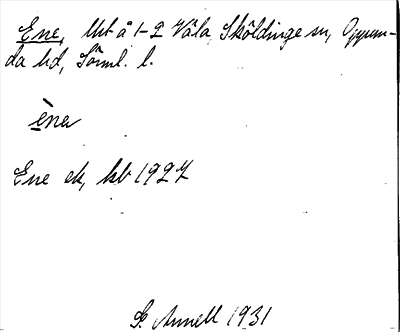 Ene, Utt å 1-2 Väla, Sköldinge sn, Oppun-
da hd, Söml. l.
èna
Ene ek, kb 1927
G. Annell 1931